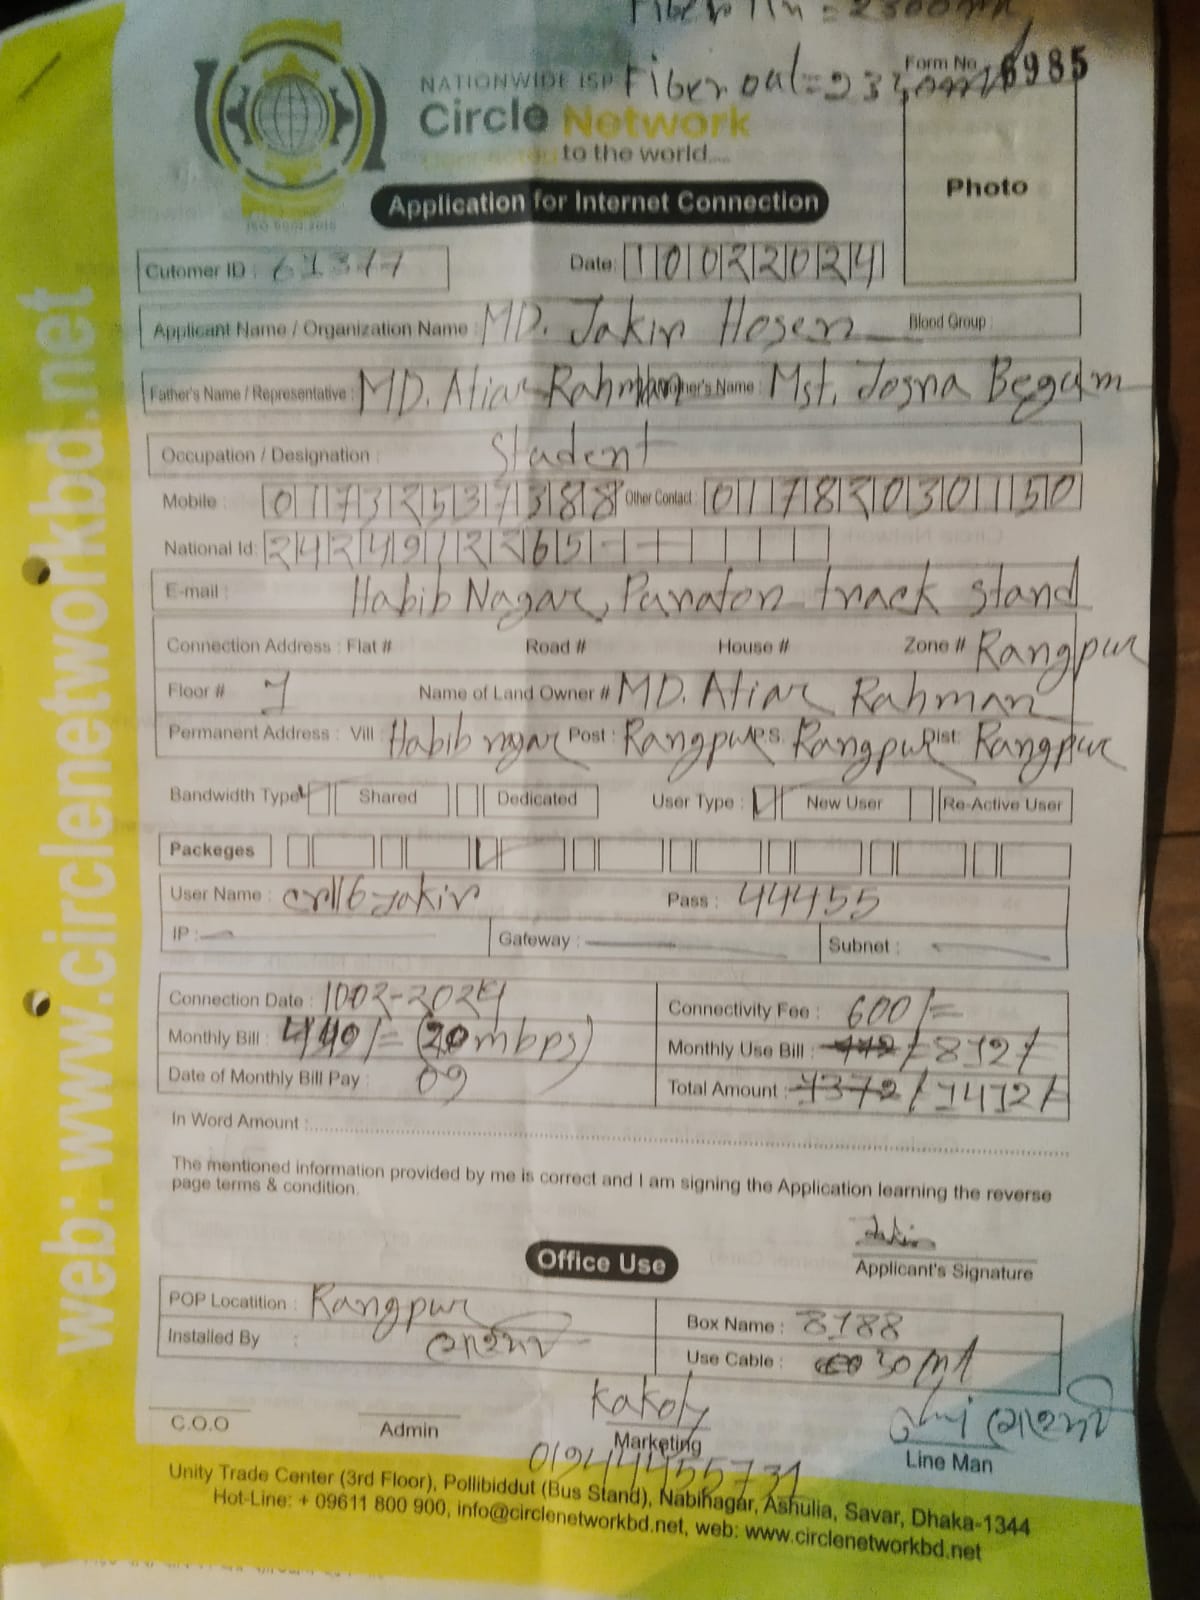 Fiber
NATIONWIDE ISP Fiber out= Form No. 6985
Circle Network
to the world....
Photo
Application for Internet Connection
Cutomer ID : 61377 Date: 10022024
Applicant Name / Organization Name : MD. Jakir Hosen Blood Group :
Father's Name / Representative : MD. Atiar Rahman Mother's Name : Mst. Josna Begum
Occupation / Designation : Student
Mobile : 01732537388 Other Contact : 01782030150
National Id: 2424971
E-mail : Habib Nagar, Puraton track stand
Connection Address : Flat # Road # House # Zone # Rangpur
Floor # 1 Name of Land Owner # MD. Atiar Rahman
Permanent Address : Vill : Habib nagar Post : Rangpur P.S: Rangpur Dist: Rangpur
Bandwidth Type: Shared Dedicated User Type : New User Re-Active User
Packeges
User Name : Pass : 44455
IP : Gateway : Subnet :
Connection Date : 1002-2024 Connectivity Fee : 600/=
Monthly Bill : 440/= (20mbps) Monthly Use Bill : 812/
Date of Monthly Bill Pay : 09 Total Amount : 1412/
In Word Amount :
The mentioned information provided by me is correct and I am signing the Application learning the reverse
page terms & condition.
Jakir
Applicant's Signature
Office Use
POP Locatition : Rangpur Box Name : 8188
Installed By : Use Cable : 30 mt
Kakoly
C.O.O Admin Marketing Line Man
Unity Trade Center (3rd Floor), Pollibiddut (Bus Stand), Nabinagar, Ashulia, Savar, Dhaka-1344
Hot-Line: + 09611 800 900, info@circlenetworkbd.net, web: www.circlenetworkbd.net
web: www.circlenetworkbd.net